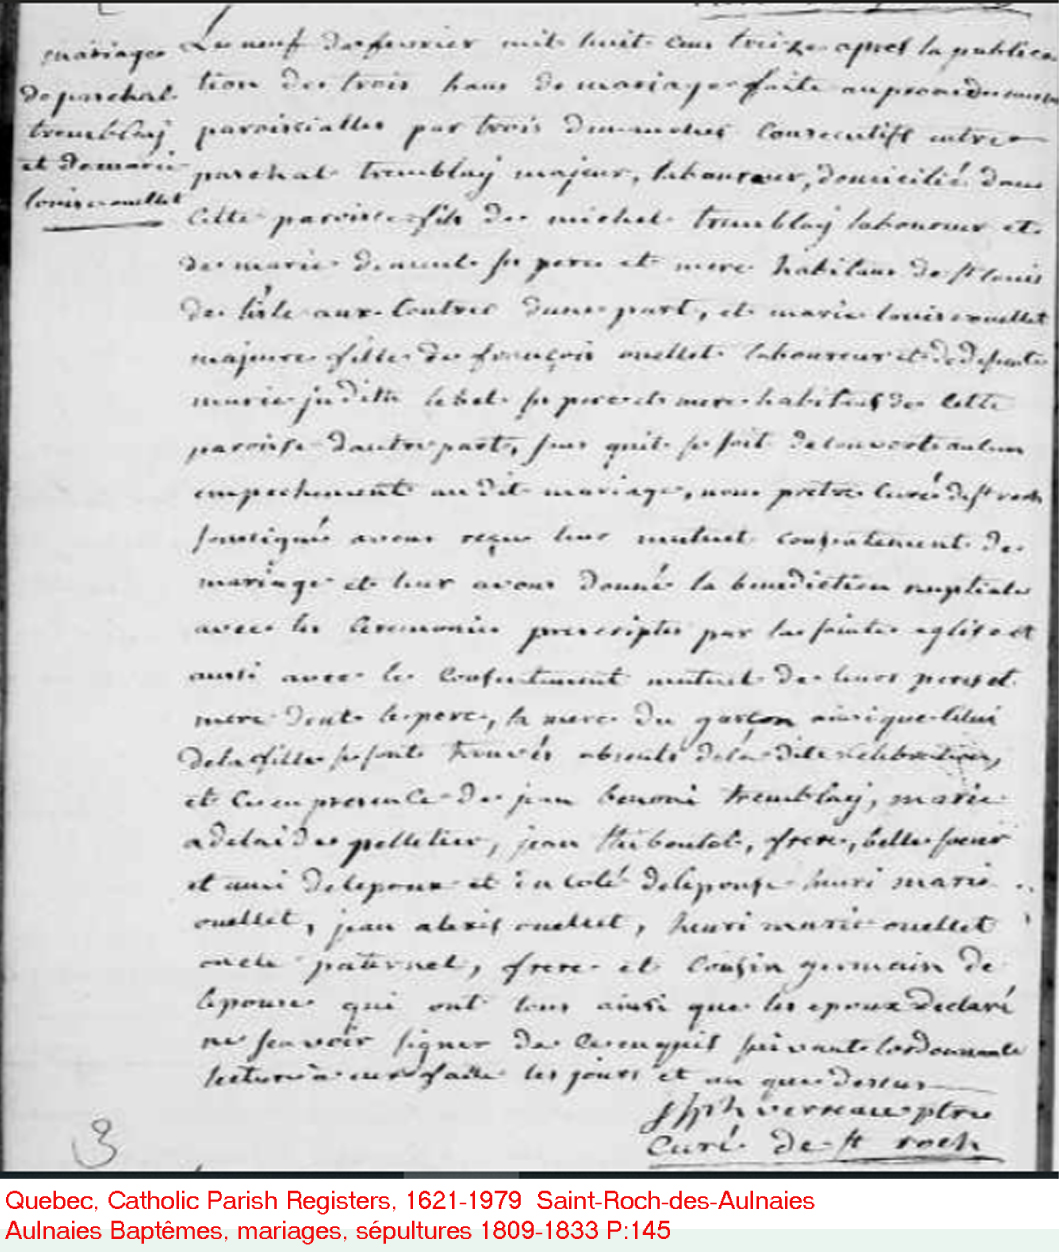 mariage
de paschal
tremblay
et de marie
louise ouellet
Le neuf de fevrier mil huit cens treize apres la publica
tion de trois bans de mariage faite au prone des messes
paroissialles par trois dimanches consecutifs entre
paschal tremblay majeur, laboureur, domicilié dans
cette paroisse fils de michel tremblay laboureur et
de marie se pere et mere habitans de st louis
de lisle aux Coudres dune part, et marie louise ouellet
majeure fille de françois ouellet laboureur et de defunte
marie judith lebel se pere et mere habitans de cette
paroisse dautre part, sans quil se soit decouvert aucun
empechement au dit mariage, nous prêtre Curé de st roch
soussigné avons reçu leur mutuel consentement de
mariage et leur avons donné la benediction nuptiale
avec les ceremonies prescriptes par la sainte eglise et
aussi avec le consentement mutuel de leurs peres et
mere dont le pere, la mere du garçon ainsi que celui
de la fille se sont trouvés absents de la dite celebration,
et ce en presence de jean benoni tremblay, marie
adelaide pelletier, jean thiboutot, frere, belle soeur
et ami de lepoux et du coté de lepouse henri marie
ouellet, jean alexis ouellet, henri marie ouellet
oncle paternel, frere et cousin germain de
lepouse qui ont tous ainsi que les epoux declaré
ne sçavoir signer de ce enquis suivant lordonnance
lecture à eux faite les jours et an que dessus
Jph verreau ptre
Curé de st roch
3
Quebec, Catholic Parish Registers, 1621-1979 Saint-Roch-des-Aulnaies
Aulnaies Baptêmes, mariages, sépultures 1809-1833 P:145